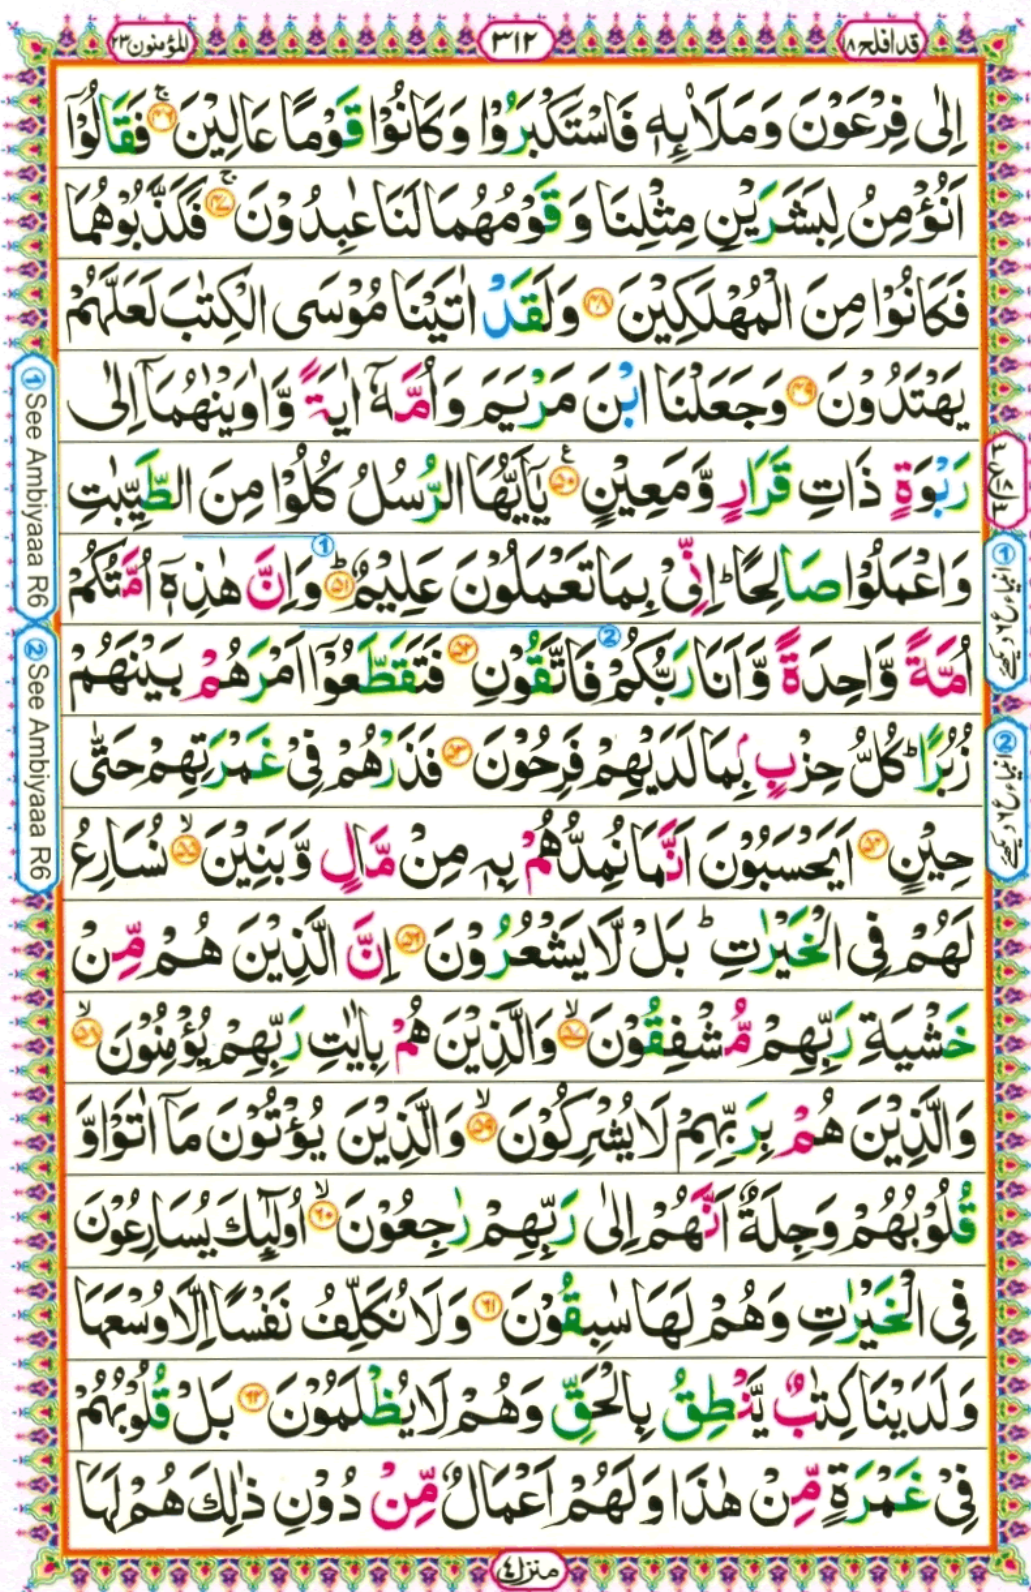 قد افلح ١٨
٣١٢
المؤمنون ٢٣
اِلٰى فِرْعَوْنَ وَمَلَا۟ئِهٖ فَاسْتَكْبَرُوْا وَكَانُوْا قَوْمًا عَالِيْنَ ۚ﴿۴۶﴾ فَقَالُوْۤا
اَنُؤْمِنُ لِبَشَرَيْنِ مِثْلِنَا وَقَوْمُهُمَا لَنَا عٰبِدُوْنَ ۚ﴿۴۷﴾ فَكَذَّبُوْهُمَا
فَكَانُوْا مِنَ الْمُهْلَكِيْنَ ﴿۴۸﴾ وَلَقَدْ اٰتَيْنَا مُوْسَى الْكِتٰبَ لَعَلَّهُمْ
يَهْتَدُوْنَ ﴿۴۹﴾ وَجَعَلْنَا ابْنَ مَرْيَمَ وَاُمَّهٗۤ اٰيَةً وَّاٰوَيْنٰهُمَاۤ اِلٰى
رَبْوَةٍ ذَاتِ قَرَارٍ وَّمَعِيْنٍ ﴿۵۰﴾ ع يٰۤاَيُّهَا الرُّسُلُ كُلُوْا مِنَ الطَّيِّبٰتِ
وَاعْمَلُوْا صَالِحًا ؕ اِنِّىْ بِمَا تَعْمَلُوْنَ عَلِيْمٌ ؕ﴿۵۱﴾ وَاِنَّ هٰذِهٖۤ اُمَّتُكُمْ
اُمَّةً وَّاحِدَةً وَّاَنَا رَبُّكُمْ فَاتَّقُوْنِ ﴿۵۲﴾ فَتَقَطَّعُوْۤا اَمْرَهُمْ بَيْنَهُمْ
زُبُرًا ؕ كُلُّ حِزْبٍۭ بِمَا لَدَيْهِمْ فَرِحُوْنَ ﴿۵۳﴾ فَذَرْهُمْ فِىْ غَمْرَتِهِمْ حَتّٰى
حِيْنٍ ﴿۵۴﴾ اَيَحْسَبُوْنَ اَنَّمَا نُمِدُّهُمْ بِهٖ مِنْ مَّالٍ وَّبَنِيْنَ ۙ﴿۵۵﴾ نُسَارِعُ
لَهُمْ فِى الْخَيْرٰتِ ؕ بَلْ لَّا يَشْعُرُوْنَ ﴿۵۶﴾ اِنَّ الَّذِيْنَ هُمْ مِّنْ
خَشْيَةِ رَبِّهِمْ مُّشْفِقُوْنَ ۙ﴿۵۷﴾ وَالَّذِيْنَ هُمْ بِاٰيٰتِ رَبِّهِمْ يُؤْمِنُوْنَ ۙ﴿۵۸﴾
وَالَّذِيْنَ هُمْ بِرَبِّهِمْ لَا يُشْرِكُوْنَ ۙ﴿۵۹﴾ وَالَّذِيْنَ يُؤْتُوْنَ مَاۤ اٰتَوْا وَّ
قُلُوْبُهُمْ وَجِلَةٌ اَنَّهُمْ اِلٰى رَبِّهِمْ رٰجِعُوْنَ ۙ﴿۶۰﴾ اُولٰٓئِكَ يُسَارِعُوْنَ
فِى الْخَيْرٰتِ وَهُمْ لَهَا سٰبِقُوْنَ ﴿۶۱﴾ وَلَا نُكَلِّفُ نَفْسًا اِلَّا وُسْعَهَا
وَلَدَيْنَا كِتٰبٌ يَّنْطِقُ بِالْحَقِّ وَهُمْ لَا يُظْلَمُوْنَ ﴿۶۲﴾ بَلْ قُلُوْبُهُمْ
فِىْ غَمْرَةٍ مِّنْ هٰذَا وَلَهُمْ اَعْمَالٌ مِّنْ دُوْنِ ذٰلِكَ هُمْ لَهَا
منزل ٤
① See Ambiyaaa R6
② See Ambiyaaa R6